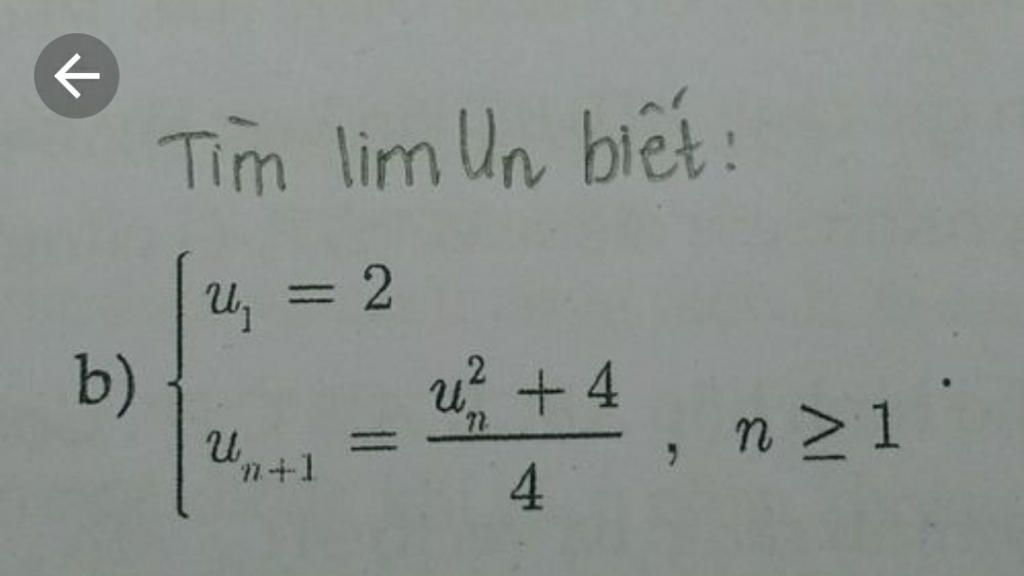 Tìm lim Un biết:
b) { u_1 = 2
u_{n+1} = \frac{u_n^2 + 4}{4} , n ≥ 1 .